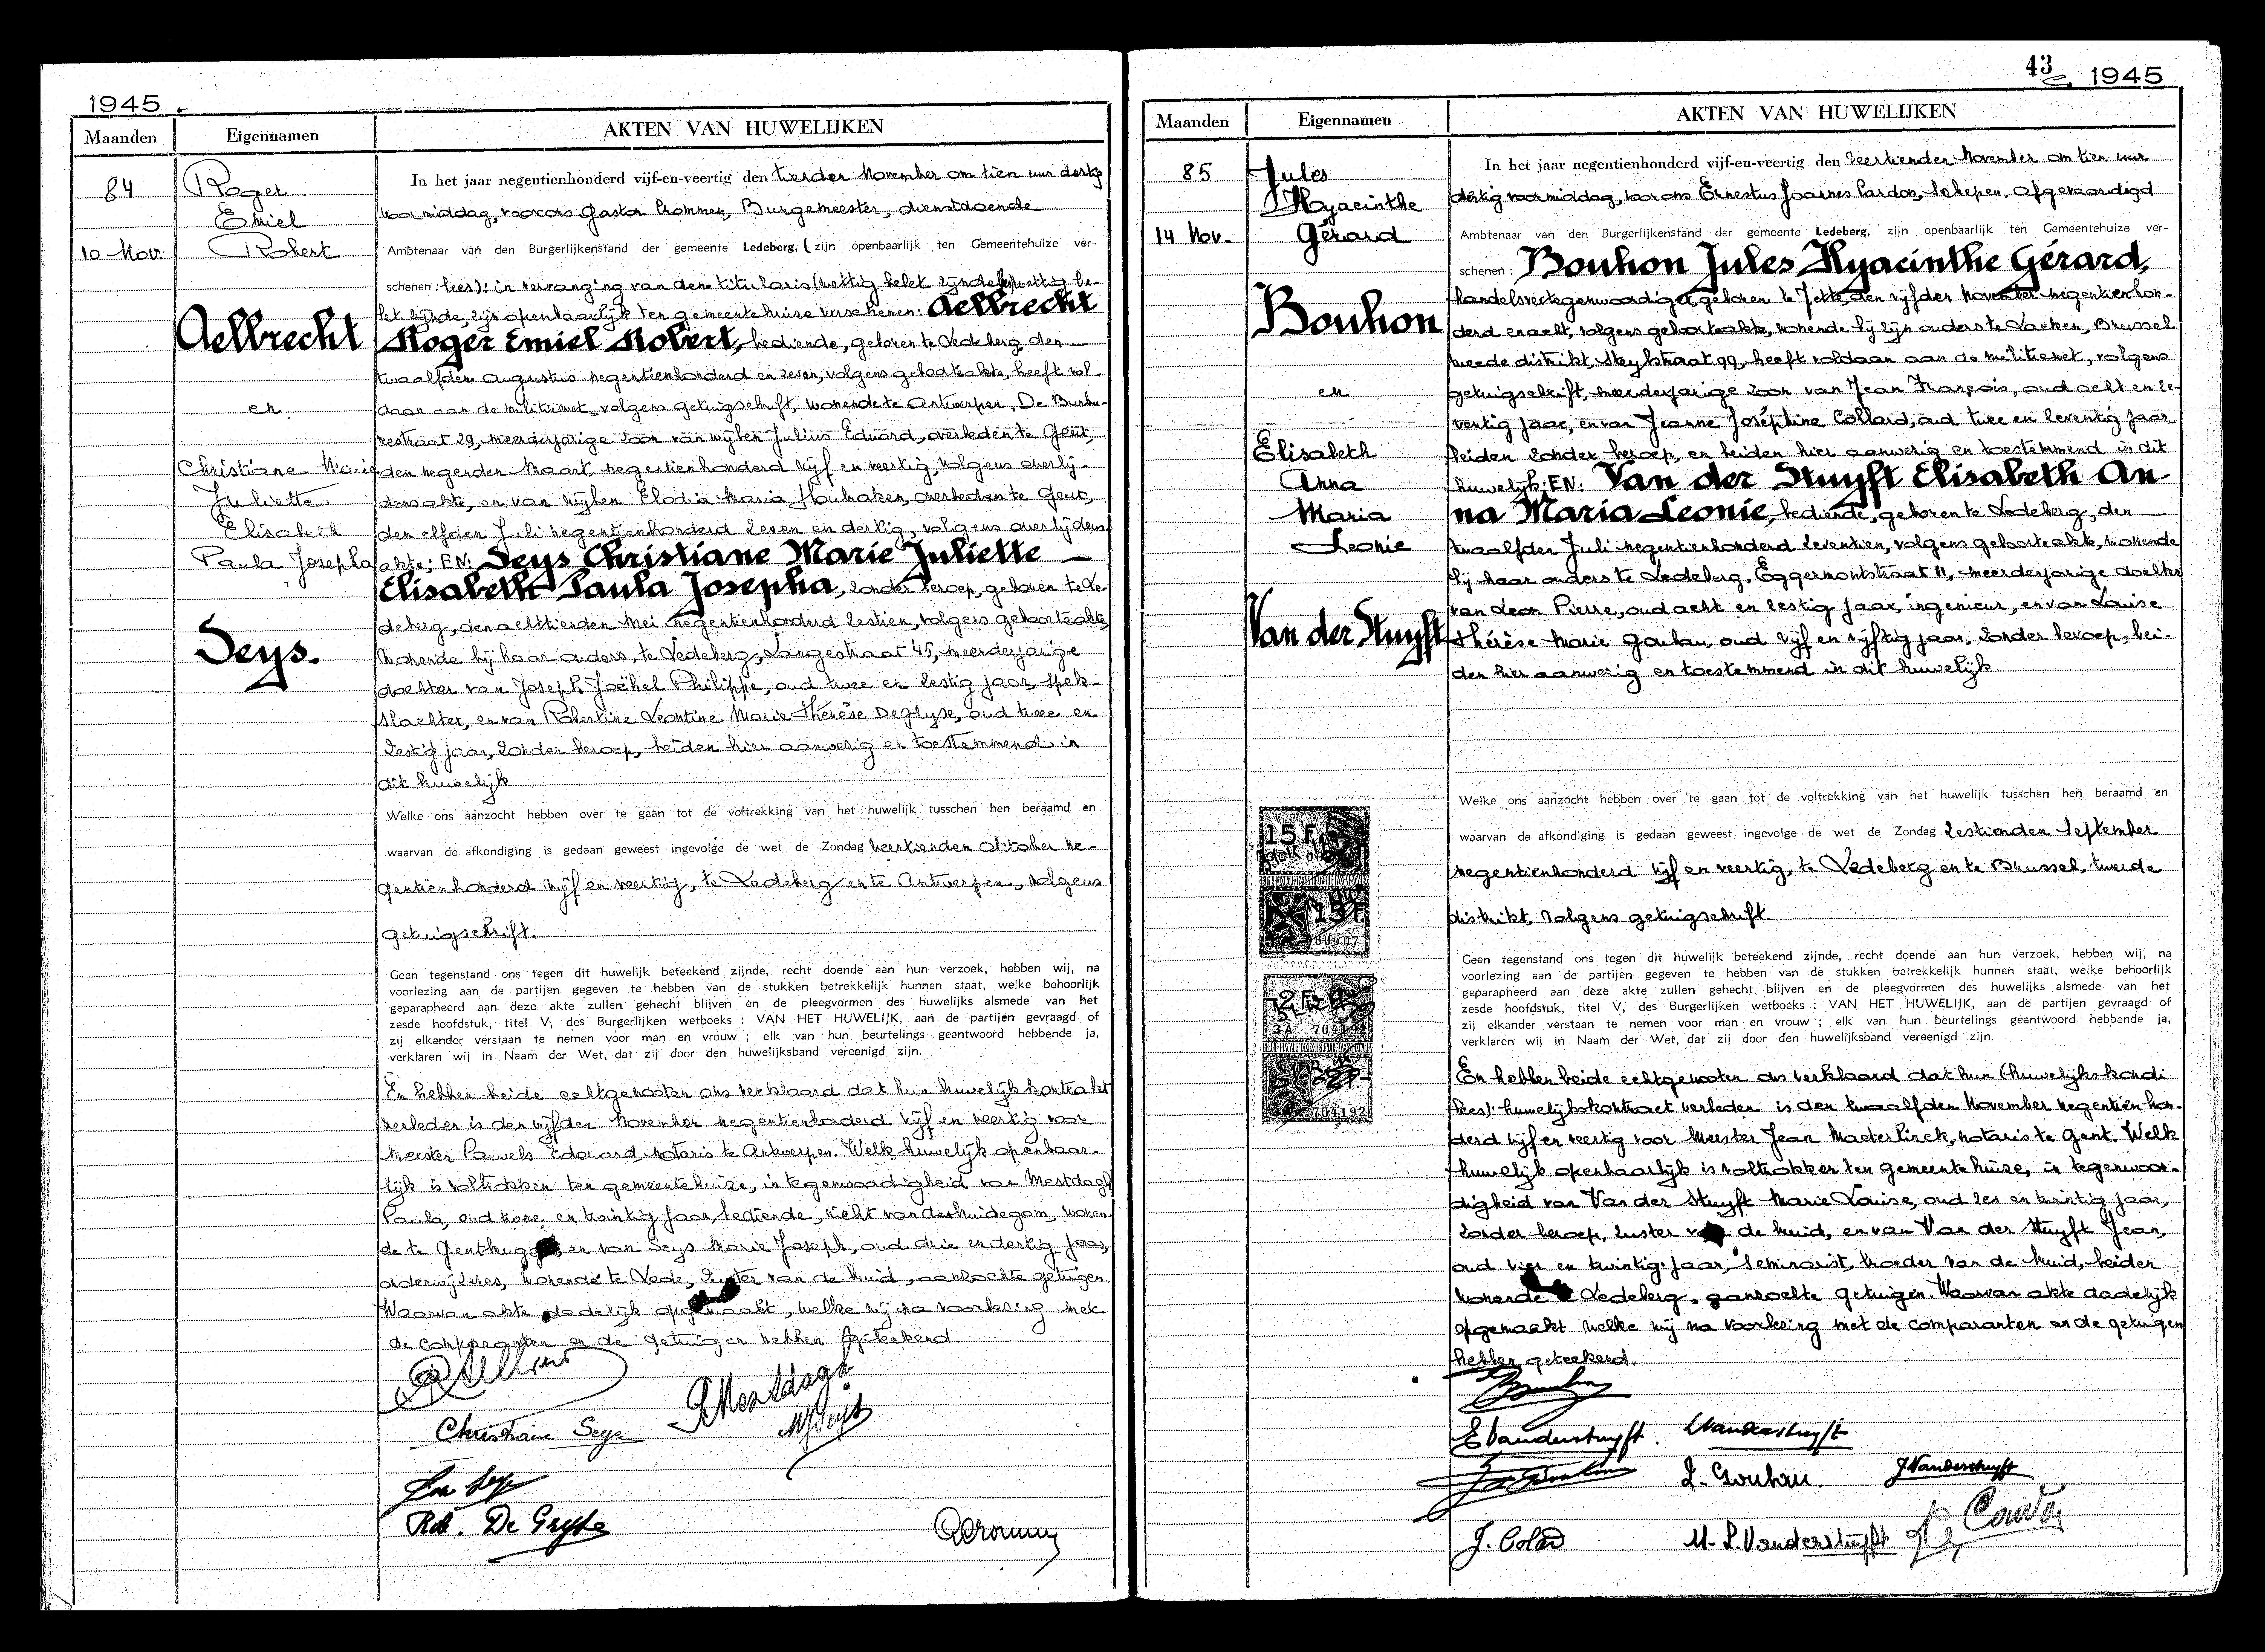 1945
Maanden
Eigennamen
AKTEN VAN HUWELIJKEN
84
10 Nov.
Roger
Emiel
Robert
Aelbrecht
en
Christiane Marie
Juliette
Elisabeth
Paula Josepha
Seys.
In het jaar negentienhonderd vijf-en-veertig den tienden November om tien uur dertig
voormiddag, voor ons Gaston Crommen, Burgemeester, dienstdoende
Ambtenaar van den Burgerlijkenstand der gemeente Ledeberg, ( zijn openbaarlijk ten Gemeentehuize ver-
schenen : lees): in vervanging van den titularis (wettig belet zijnde) wettig be-
let zijnde, zijn openbaarlijk ten gemeentehuize verschenen: Aelbrecht
Roger Emiel Robert, bediende, geboren te Ledeberg den
twaalfden Augustus negentienhonderd en zeven, volgens geboorteakte, heeft vol-
daan aan de militiewet, volgens getuigschrift, wonende te Antwerpen, De Burbu-
restraat 29, meerderjarige zoon van wijlen Julius Eduard, overleden te Gent,
den negenden Maart negentienhonderd vijf en veertig, volgens overlij-
densakte, en van wijlen Elodia Maria Houtraken, overleden te Gent,
den elfden Juli negentienhonderd zeven en dertig, volgens overlijdens
akte; EN: Seys Christiane Marie Juliette —
Elisabeth Paula Josepha, zonder beroep, geboren te Le-
deberg, den achttienden Mei negentienhonderd zestien, volgens geboorteakte
wonende bij haar ouders, te Ledeberg, Langestraat 45, meerderjarige
dochter van Joseph Joëhel Philippe, oud twee en zestig jaar, spek-
slachter, en van Robertine Leontine Marie Thérèse De Gryse, oud twee en
zestig jaar, zonder beroep, beiden hier aanwezig en toestemmend in
dit huwelijk
Welke ons aanzocht hebben over te gaan tot de voltrekking van het huwelijk tusschen hen beraamd en
waarvan de afkondiging is gedaan geweest ingevolge de wet de Zondag veertienden Oktober ne-
gentienhonderd vijf en veertig, te Ledeberg en te Antwerpen, volgens
getuigschrift.
Geen tegenstand ons tegen dit huwelijk beteekend zijnde, recht doende aan hun verzoek, hebben wij, na
voorlezing aan de partijen gegeven te hebben van de stukken betrekkelijk hunnen staat, welke behoorlijk
geparapheerd aan deze akte zullen gehecht blijven en de pleegvormen des huwelijks alsmede van het
zesde hoofdstuk, titel V, des Burgerlijken wetboeks : VAN HET HUWELIJK, aan de partijen gevraagd of
zij elkander verstaan te nemen voor man en vrouw ; elk van hun beurtelings geantwoord hebbende ja,
verklaren wij in Naam der Wet, dat zij door den huwelijksband vereenigd zijn.
En hebben beide echtgenooten ons verklaard dat hun huwelijkskontrakt
verleden is den vijfden November negentienhonderd vijf en veertig voor
meester Pauwels Edouard notaris te Antwerpen. Welk huwelijk openbaar-
lijk is voltrokken ten gemeentehuize, in tegenwoordigheid van Mestdagh
Paula, oud twee en twintig jaar, bediende, nicht van den bruidegom, wonen-
de te Gentbrugge en van Seys Marie Joseph, oud drie en dertig jaar,
onderwijzeres, wonende te Lede, zuster van de bruid, aanzochte getuigen
Waarvan akte dadelijk opgemaakt, welke wij na voorlezing met
de comparanten en de getuigen hebben geteekend
PMestdagh
Christiane Seys
MJSeys
Jos Seys
Rob. De Gryse
GCrommen
43
1945
Maanden
Eigennamen
AKTEN VAN HUWELIJKEN
85
14 Nov.
Jules
Hyacinthe
Gérard
Bouhon
en
Elisabeth
Anna
Maria
Leonie
Van der Stuyft
In het jaar negentienhonderd vijf-en-veertig den veertienden November om tien uur
dertig voormiddag, voor ons Ernestus Joannes Cardon, Schepen, afgevaardigd
Ambtenaar van den Burgerlijkenstand der gemeente Ledeberg, zijn openbaarlijk ten Gemeentehuize ver-
schenen : Bouhon Jules Hyacinthe Gérard,
handelsvertegenwoordiger, geboren te Jette, den vijfden November negentienhon-
derd en acht, volgens geboorteakte, wonende bij zijn ouders te Laeken, Brussel
tweede distrikt, Steylstraat 99, heeft voldaan aan de militiewet, volgens
getuigschrift, meerderjarige zoon van Jean François, oud acht en ze-
ventig jaar, en van Jeanne Joséphine Collard, oud twee en zeventig jaar
beiden zonder beroep, en beiden hier aanwezig en toestemmend in dit
huwelijk; EN: Van der Stuyft Elisabeth An-
na Maria Leonie, bediende, geboren te Ledeberg, den
twaalfden Juli negentienhonderd zeventien, volgens geboorteakte, wonende
bij haar ouders te Ledeberg, Eggermontstraat 11, meerderjarige dochter
van Leon Pierre, oud acht en zestig jaar, ingenieur, en van Louise
Thérèse Marie Gouhau, oud vijf en vijftig jaar, zonder beroep, bei-
den hier aanwezig en toestemmend in dit huwelijk
Welke ons aanzocht hebben over te gaan tot de voltrekking van het huwelijk tusschen hen beraamd en
waarvan de afkondiging is gedaan geweest ingevolge de wet de Zondag zestienden September
negentienhonderd vijf en veertig, te Ledeberg en te Brussel, tweede
distrikt, volgens getuigschrift.
15 F
15 F.
960507
2 F
3 A 704192
2 F
3 A 704192
Geen tegenstand ons tegen dit huwelijk beteekend zijnde, recht doende aan hun verzoek, hebben wij, na
voorlezing aan de partijen gegeven te hebben van de stukken betrekkelijk hunnen staat, welke behoorlijk
geparapheerd aan deze akte zullen gehecht blijven en de pleegvormen des huwelijks alsmede van het
zesde hoofdstuk, titel V, des Burgerlijken wetboeks : VAN HET HUWELIJK, aan de partijen gevraagd of
zij elkander verstaan te nemen voor man en vrouw ; elk van hun beurtelings geantwoord hebbende ja,
verklaren wij in Naam der Wet, dat zij door den huwelijksband vereenigd zijn.
En hebben beide echtgenooten ons verklaard dat hun (huwelijkskondi
lees): huwelijkskontract verleden is den twaalfden November negentienhon-
derd vijf en veertig voor Meester Jean Maeterlinck, notaris te Gent. Welk
huwelijk openbaarlijk is voltrokken ten gemeentehuize, in tegenwoor-
digheid van Van der Stuyft Marie Louise, oud zes en twintig jaar,
zonder beroep, zuster van de bruid, en van Van der Stuyft Jean,
oud vier en twintig jaar, seminarist, broeder van de bruid, beiden
wonende te Ledeberg, aanzochte getuigen. Waarvan akte dadelijk
opgemaakt welke wij na voorlezing met de comparanten en de getuigen
hebben geteekend.
EVanderstuyft. LVanderstuyft
L. Gouhau. JVanderstuyft
J. Colard M-L.Vanderstuyft Cardon